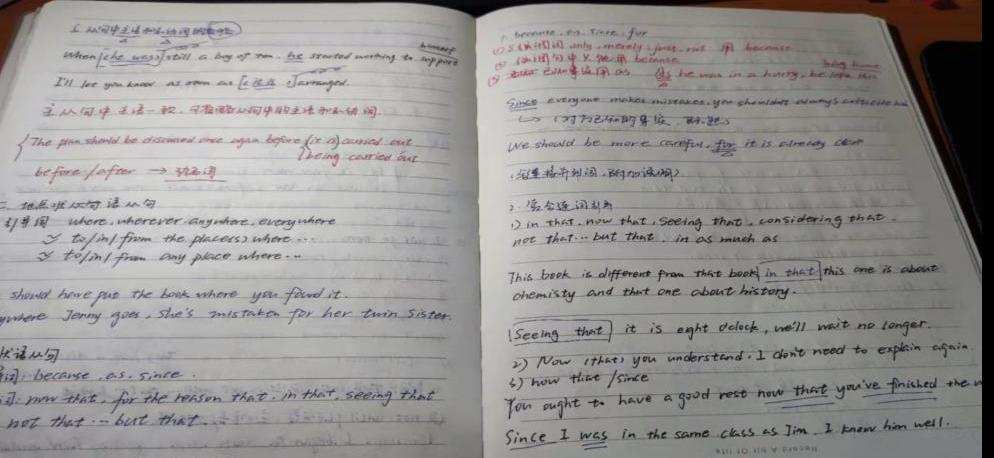 5. 从句中主语和系动词的省略
When (she was) still a boy of ten, he started working to support himself
I'll let you know as soon as [it is] arranged.
主从句主语一致,可省略从句中的主语和系动词.
The plan should be discussed once again before (it is) carried out
being carried out
before/after → 动名词
二、地点状从句语从句
引导词 where, wherever, anywhere, everywhere
to/in/from the place(s) where ...
to/in/from any place where ...
should have put the book where you found it.
ywhere Jenny goes, she's mistaken for her twin sister.
状语从句
词: because, as, since.
词: now that, for the reason that, in that, seeing that
not that ... but that.
because, as, since, for
only, merely, just, not 用 because
句中只能用 because
已知事实用 as he was in a hurry, he left this
being home
Since everyone makes mistakes, you shouldn't always criticise
(对方已知的事实、)
We should be more careful, for it is already dark
2. 复合连词引导
1) in that, now that, seeing that, considering that.
not that ... but that, in as much as
This book is different from that book in that this one is about
chemisty and that one about history.
Seeing that it is eight o'clock, we'll wait no longer.
2) Now (that) you understand, I don't need to explain again.
3) now that / since
You ought to have a good rest now that you've finished the w
Since I was in the same class as Jim, I knew him well.
Record A bit Of life